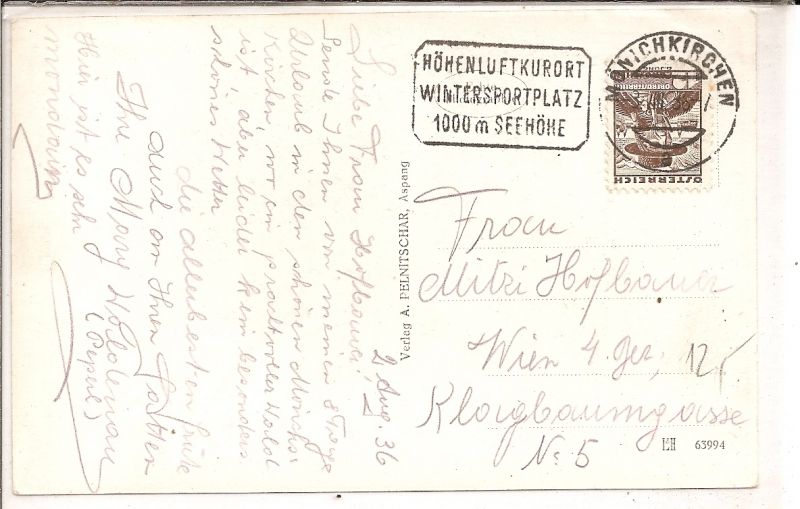 2. Aug. 36
Liebe Frau Hofbauer!
Sende Ihnen von meinem 8 Tage
Urlaub in den schönen Mönichs
Kirchen wo ein prachtvoller Wald
ist aber leider kein besonders
schönes Wetter
die allerbesten Grüße
auch an Ihren Gatten
Ihre Mary
(Peperl)
Hier ist es sehr
mondain
Verlag A. PELNITSCHAR, Aspang
HÖHENLUFTKURORT
WINTERSPORTPLATZ
1000 m SEEHÖHE
MÖNICHKIRCHEN
ÖSTERREICH
Frau
Mitzi Hofbauer
Wien 4 Gez,
Klagbaumgasse
No 5
12
LH 63994